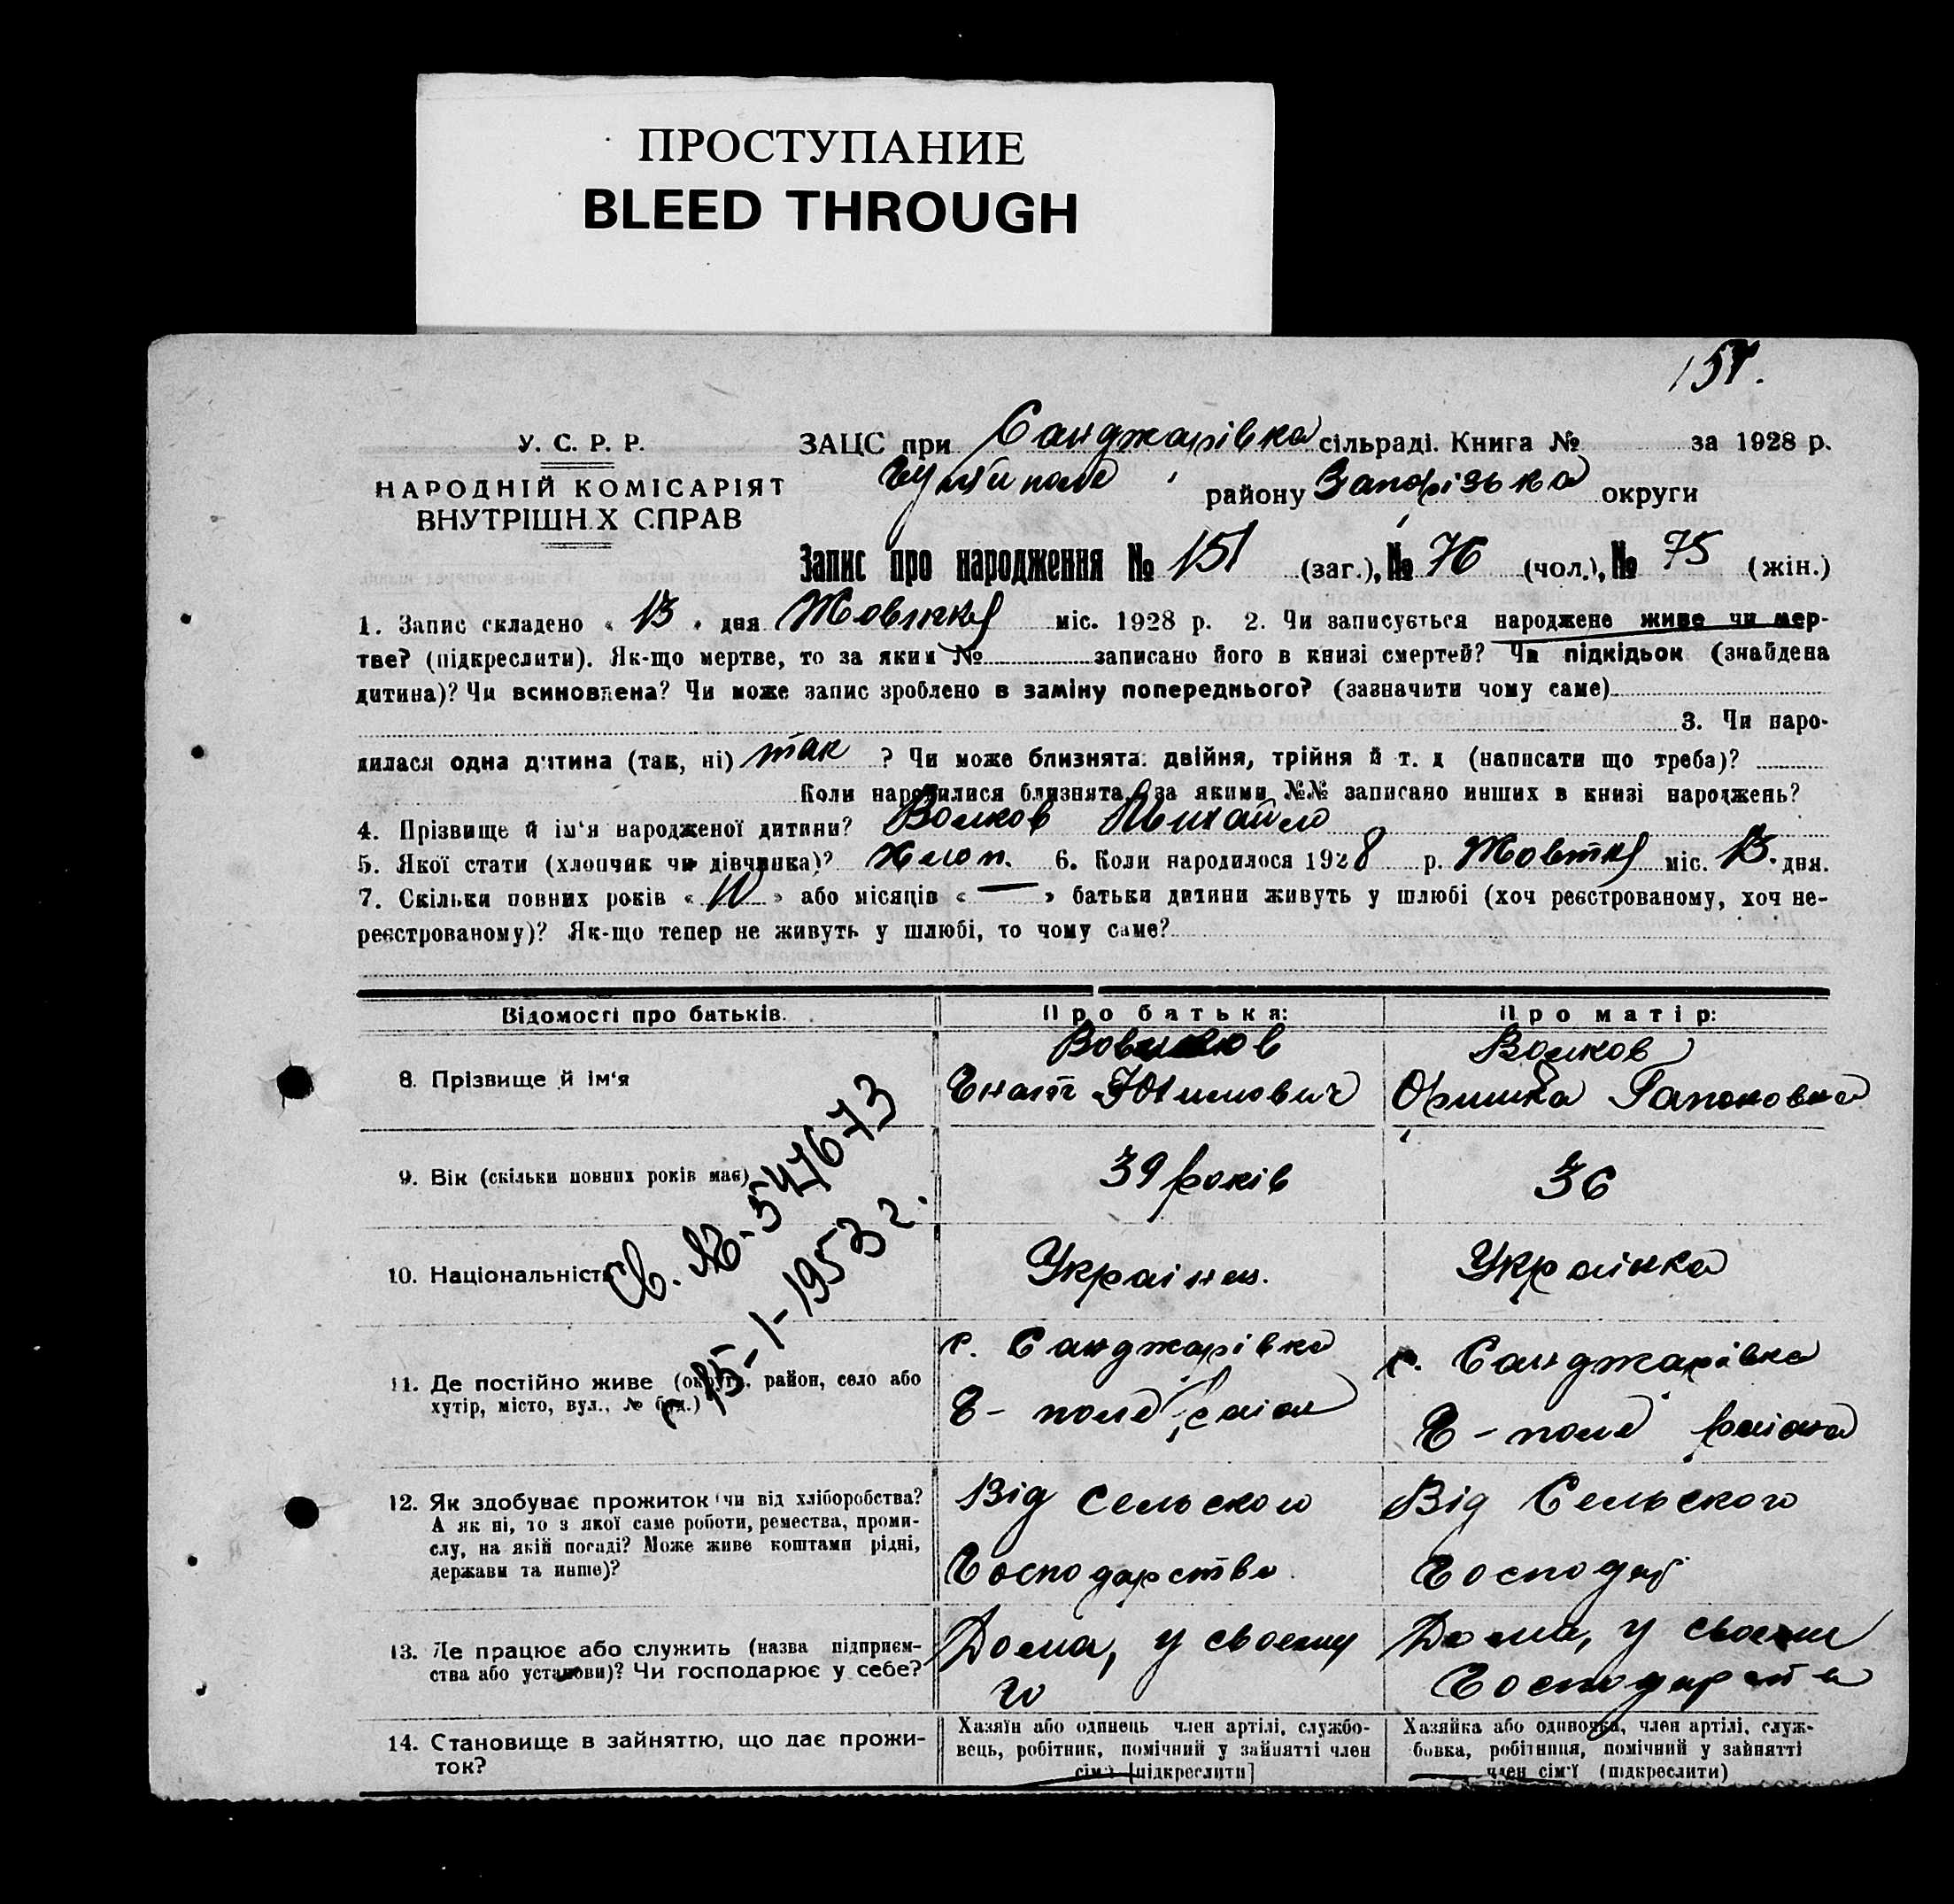 ПРОСТУПАНИЕ
BLEED THROUGH
151.
У. С. Р. Р.
НАРОДНІЙ КОМІСАРІЯТ
ВНУТРІШН.Х СПРАВ
ЗАЦС при Санджарівка сільраді. Книга № за 1928 р.
району Запорізька округи
Запис про народження № 151 (заг.), № 76 (чол.), № 75 (жін.)
1. Запис складено « 13 » дня Жовтня міс. 1928 р. 2. Чи записується народжене живе чи мер-
тве? (підкреслити). Як-що мертве, то за яким № записано його в книзі смертей? Чи підкідьок (знайдена
дитина)? Чи всиновлена? Чи може запис зроблено в заміну попереднього? (зазначити чому саме)
3. Чи наро-
дилася одна дитина (так, ні) так ? Чи може близнята: двійня, трійня й т. д (написати що треба)?
Коли народилися близнята, за якими №№ записано инших в книзі народжень?
4. Прізвище й ім'я народженої дитини? Волков Михайло
5. Якої стати (хлопчик чи дівчинка)? Хлоп. 6. Коли народилося 1928 р. Жовтня міс. 13. дня.
7. Скільки повних років « 10 » або місяців « — » батьки дитини живуть у шлюбі (хоч реєстрованому, хоч не-
реєстрованому)? Як-що тепер не живуть у шлюбі, то чому саме?
Відомості про батьків. Про батька: Про матір:
8. Прізвище й ім'я
Волков
Оришка Гапоновна
9. Вік (скільки повних років має) 39 років 36
10. Національність Українец. Українка
Св. ЯВ-547673
15-1-1953 г.
11. Де постійно живе (округа, район, село або
хутір, місто, вул., № буд.)
с. Санджарівка
Г- поле район
с. Санджарівка
Г- поле района
12. Як здобуває прожиток чи від хліборобства?
А як ні, то з якої саме роботи, ремества, проми-
слу, на якій посаді? Може живе коштами рідні,
держави та инше)?
Від Сельского
Господарства
Від Сельского
Господар
13. Де працює або служить (назва підприєм-
ства або установи)? Чи господарює у себе?
Дома, у своему
го
Дома, у своем
Господарства
14. Становище в зайняттю, що дає прожи-
ток?
Хазяїн або одинець член артілі, службо-
вець, робітник, помічний у зайнятті член
сім'ї [підкреслити]
Хазяйка або одиночка, член артілі, служ-
бовка, робітниця, помічний у зайнятті
член сім'ї (підкреслити)